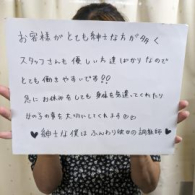 お客様がとても紳士な方が多く
スタッフさんも優しい人達ばかりなので
とても働きやすいです!!
急にお休みをしても身体を気遣ってくれたり
女の子の事を大切にしてくれます
♥紳士な僕はふんわり